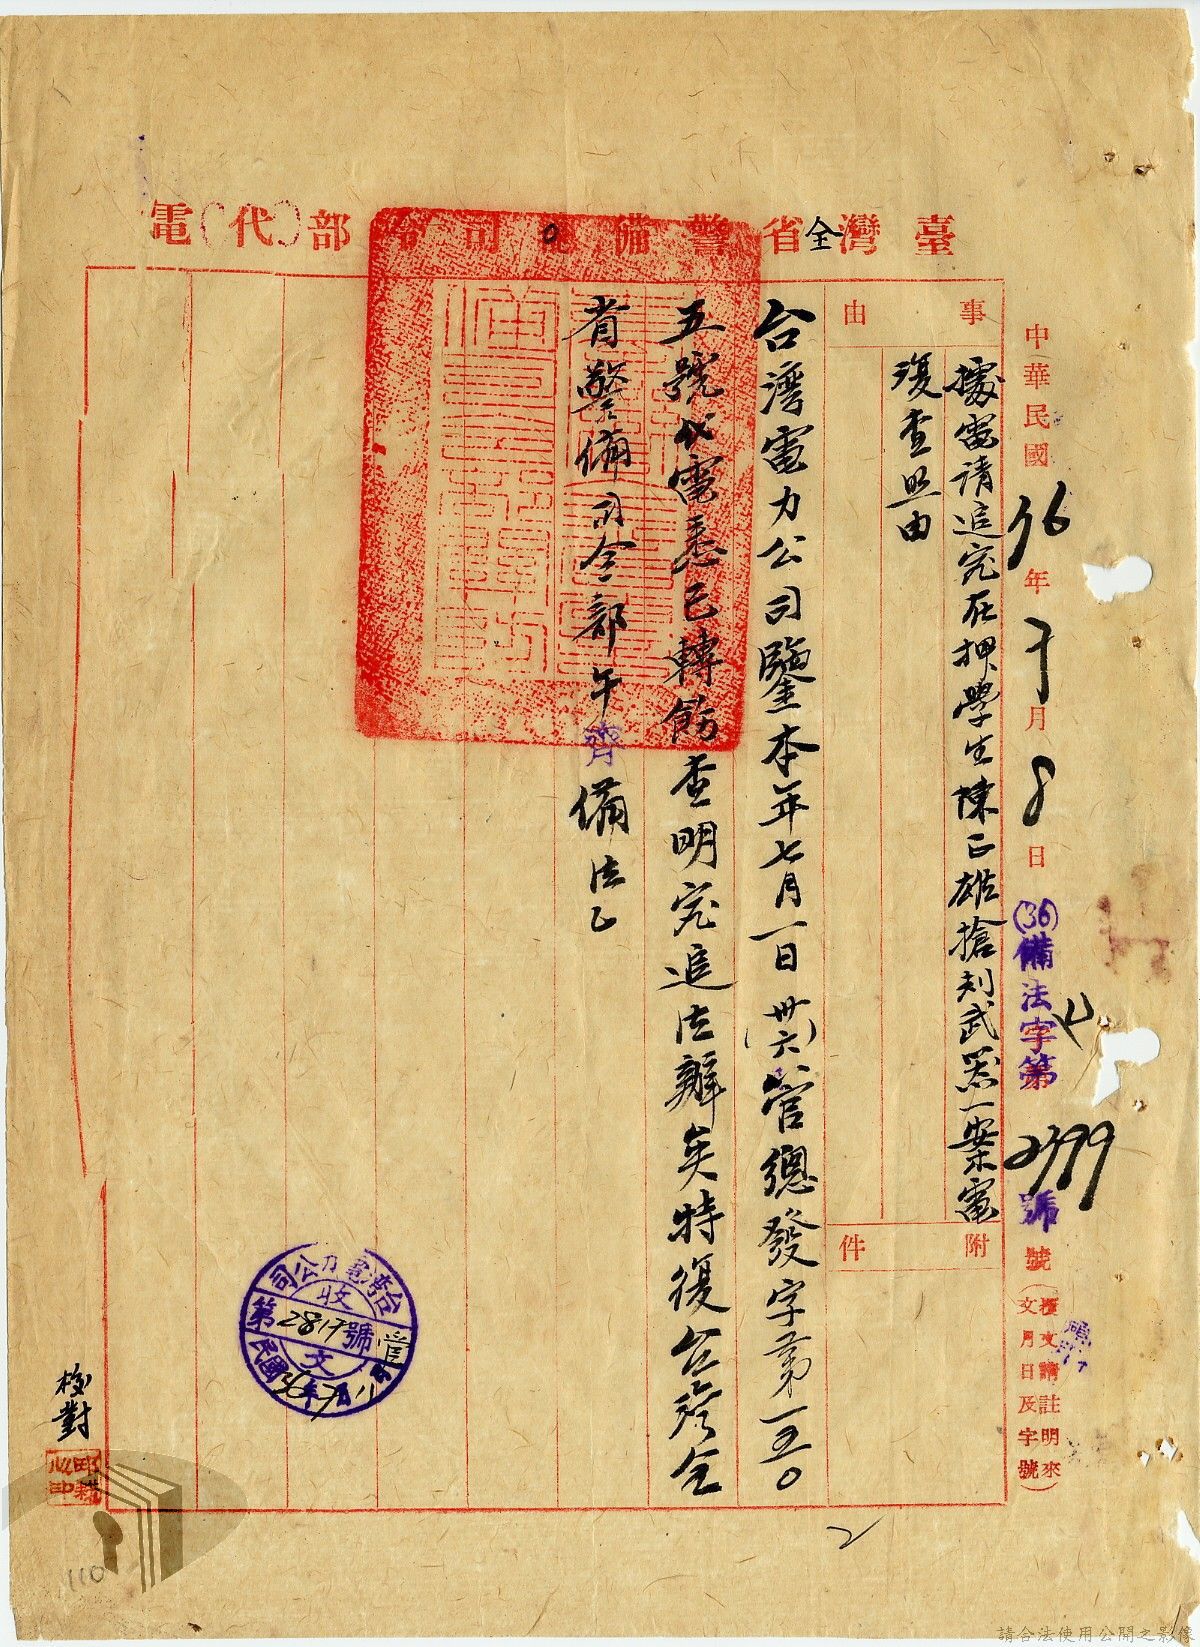 臺灣全省警備司令部（代）電
中華民國36年7月8日
(36)備法字第2799號
號（復文請註明來文月日及字號）
事由
據電請追究在押學生陳正雄搶刼武器一案電
復查照由
附件
台灣電力公司鑒本年七月一日(卅六)管總發字第一五〇
五號代電悉已轉飭查明究追法辦矣特復台灣全
省警備司令部午齊備法乙
台灣電力公司
收文
第2817號
民國36年7月
管
校對
110
請合法使用公開之影像